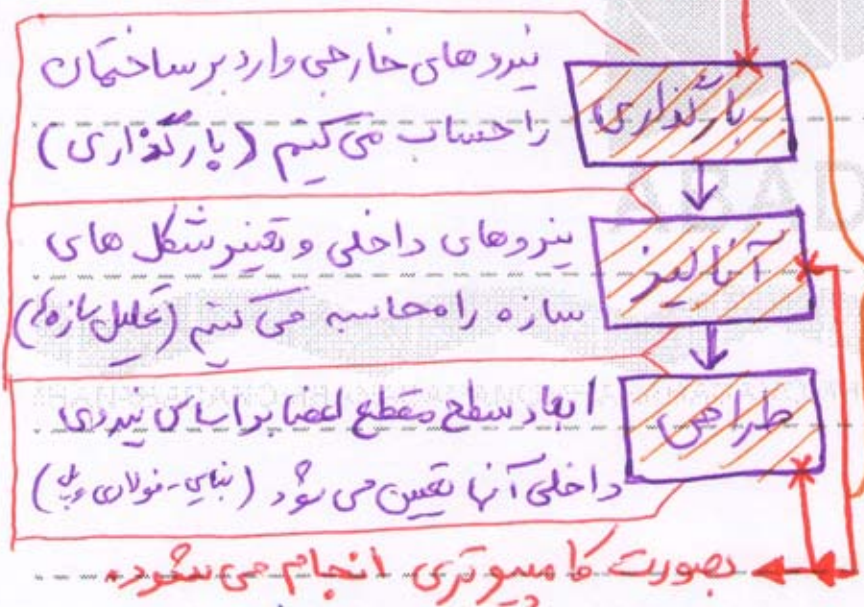 نیروهای خارجی وارد بر ساختمان
را حساب می کنیم (بارگذاری)
بارگذاری
نیروهای داخلی و تغییر شکل های
سازه را محاسبه می کنیم (تحلیل سازه)
آنالیز
ابعاد سطح مقطع اعضا بر اساس نیروی
داخلی آنها تعیین می شود (بنایی - فولادی
طراحی
بصورت کامپیوتری انجام می شود.